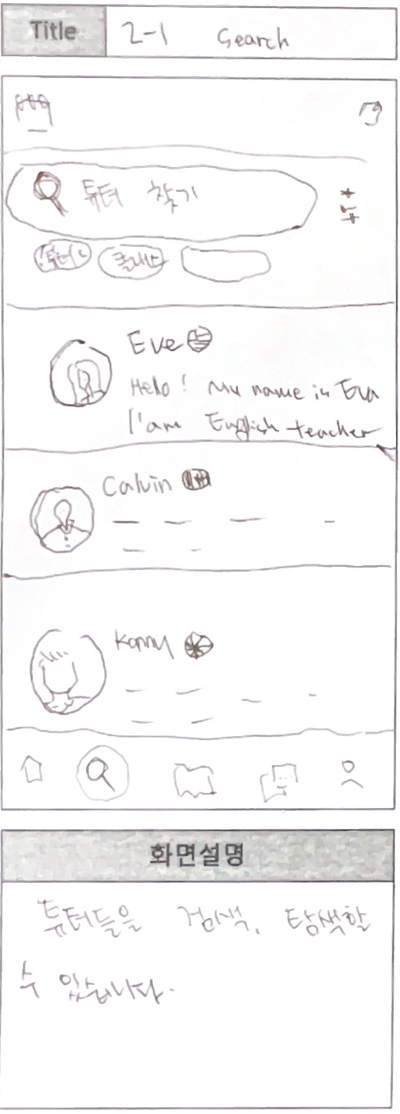 Title 2-1 Search
튜터 찾기
Eve
Hello! My name is Eva
I'am English teacher
Calvin
화면설명
튜터들을 검색, 탐색할
수 있습니다.